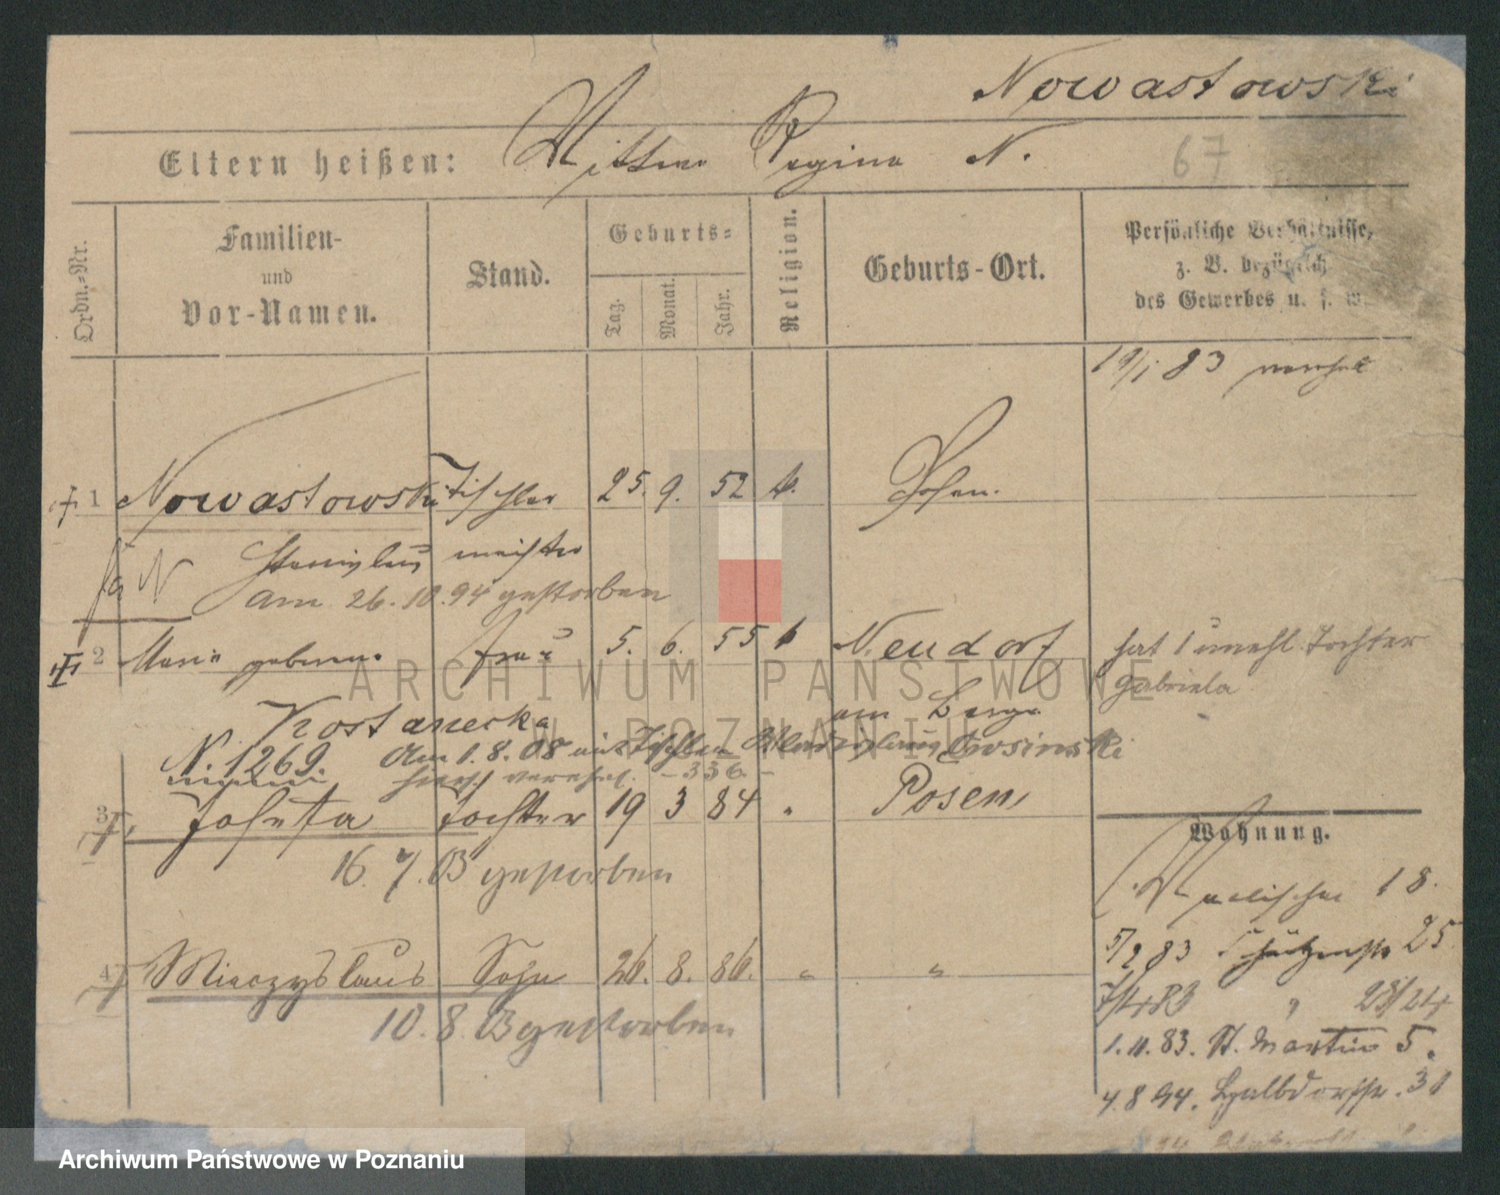 Nowastowski
Eltern heißen: Regina N. 67
Ordn.-Nr.
Familien- und Vor-Namen.
Stand.
Geburts-
Tag.
Monat.
Jahr.
Religion.
Geburts-Ort.
Persönliche Verhältnisse,
z. B. bezüglich
des Gewerbes u. s. w.
19/1 83
1 Nowastowski Tischler 25. 9. 52 k. Posen.
Stanislaus meister
am 26. 10. 94 gestorben
2 Maria geborene Frau 5. 6. 55 k Neudorf hat 1 unehl. Tochter
Gabriela
am Berge
Kostanecka
N. 1269. Am 1. 8. 08 mit Tischler Wladislaus
hier verehel. - 336 -
3 Josefa Tochter 19 3 84 " Posen
16. 7. gestorben
4 Mieczyslaus Sohn 26. 8. 86. " "
10. 8. gestorben
Wohnung.
18.
5/2 83 Schützenstr 25
1. 10. 83. St. Martin 5.
4. 8 94. Halbdorfstr. 31
ARCHIWUM PAŃSTWOWE
W POZNANIU
Archiwum Państwowe w Poznaniu